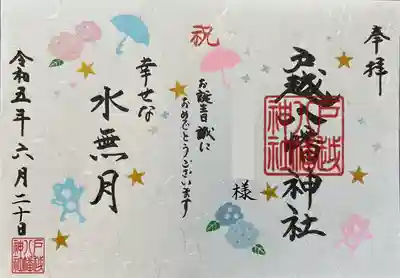 奉拝
戸越八幡神社
戸越八幡神社
祝
お誕生日誠に
おめでとうございます
様
幸せな
水無月
令和五年六月二十日
戸越八幡神社